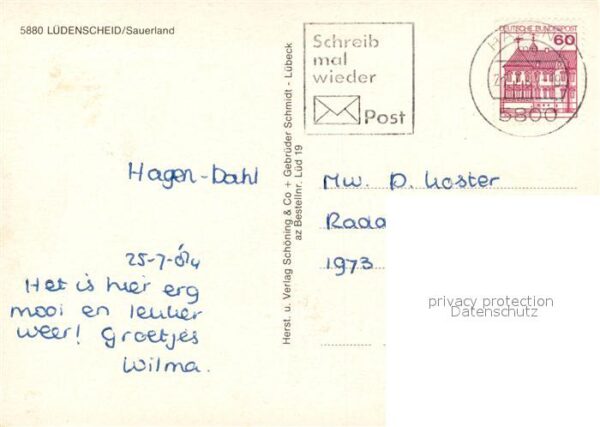 5880 LÜDENSCHEID/Sauerland
Schreib
mal
wieder
Post
DEUTSCHE BUNDESPOST
60
5800
Herst. u. Verlag Schöning & Co + Gebrüder Schmidt - Lübeck
az Bestellnr. Lüd 19
Hagen-Dahl
25-7-84
Het is hier erg
mooi en leuker
weer! Groetjes
Wilma.
Mw. D. Koster
Rada
1973
privacy protection
Datenschutz